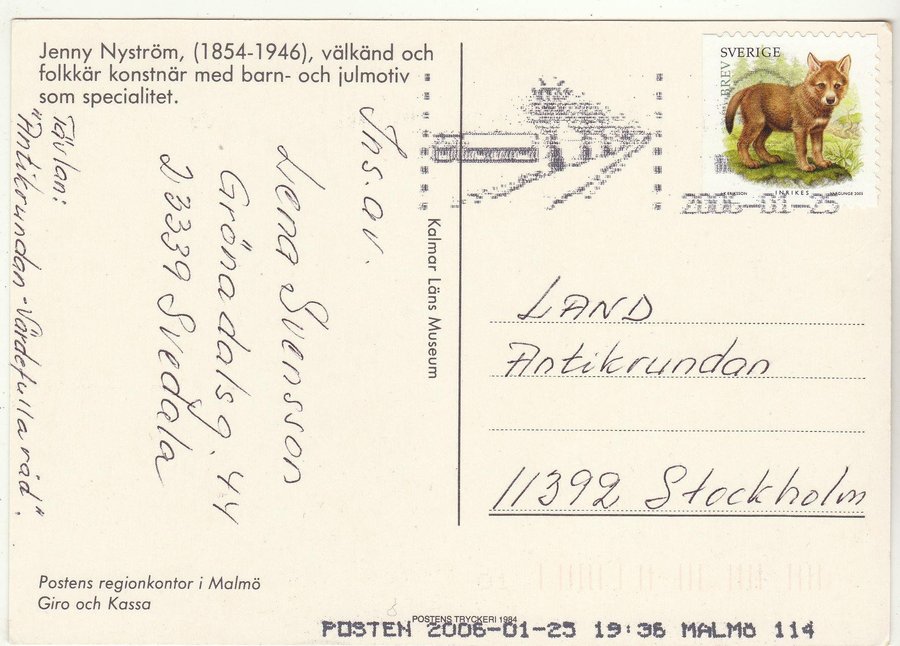 Jenny Nyström, (1854-1946), välkänd och
folkkär konstnär med barn- och julmotiv
som specialitet.
Tävlan:
"Antikrundan - Värdefulla råd".
Ins. av.
Lena Svensson
Grönadalsg. 44
23339 Svedala
Kalmar Läns Museum
SVERIGE
BREV
INRIKES
2006-01-25
LAND
Antikrundan
11392 Stockholm
Postens regionkontor i Malmö
Giro och Kassa
POSTENS TRYCKERI 1984
POSTEN 2006-01-25 19:36 MALMÖ 114